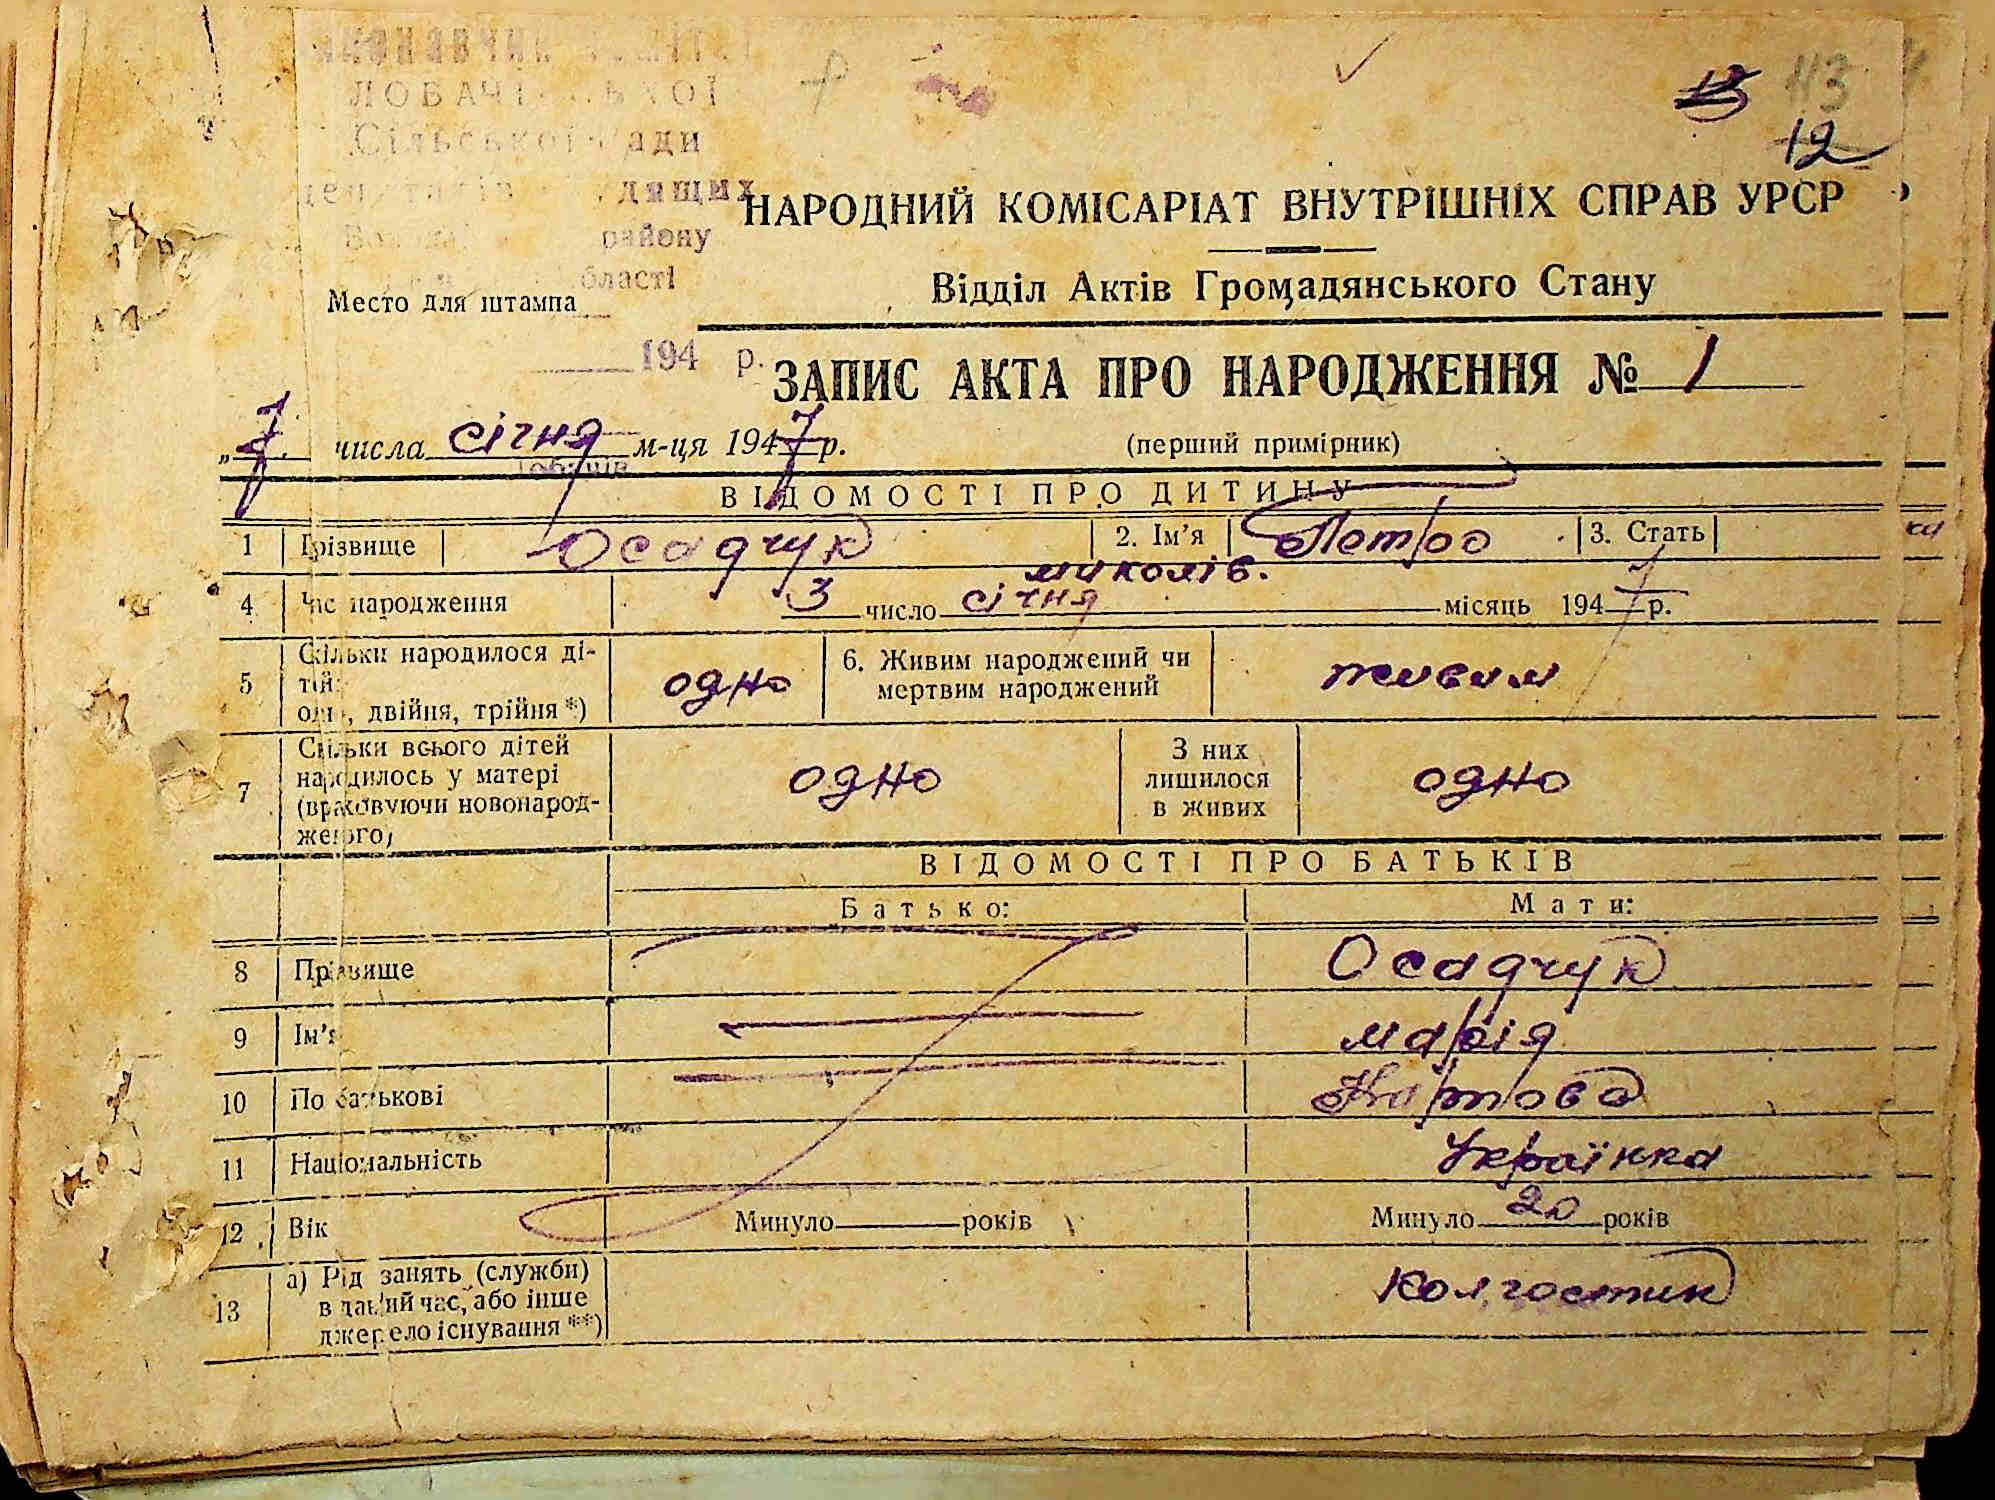 ЛОБАЧІ
Сільської ради
дящих
району
області
Место для штампа
194 р.
113
12
НАРОДНИЙ КОМІСАРІАТ ВНУТРІШНІХ СПРАВ УРСР
Відділ Актів Громадянського Стану
ЗАПИС АКТА ПРО НАРОДЖЕННЯ № 1
„7. числа січня м-ця 1947 р. (перший примірник)
ВІДОМОСТІ ПРО ДИТИНУ
1 Прізвище Осадчук 2. Ім'я Петро 3. Стать
миколів.
4 Час народження 3 число січня місяць 1947 р.
5 Скільки народилося ді-
тей:
одне, двійня, трійня*) одно 6. Живим народжений чи
мертвим народжений живим
7 Скільки всього дітей
народилось у матері
(враховуючи новонарод-
женого) одно З них
лишилося
в живих одно
ВІДОМОСТІ ПРО БАТЬКІВ
Батько: Мати:
8 Прізвище Осадчук
9 Ім'я марія
10 По батькові
11 Національність Українка
12 Вік Минуло років Минуло 20 років
13 а) Рід занять (служби)
в даний час, або інше
джерело існування**) Колгостик